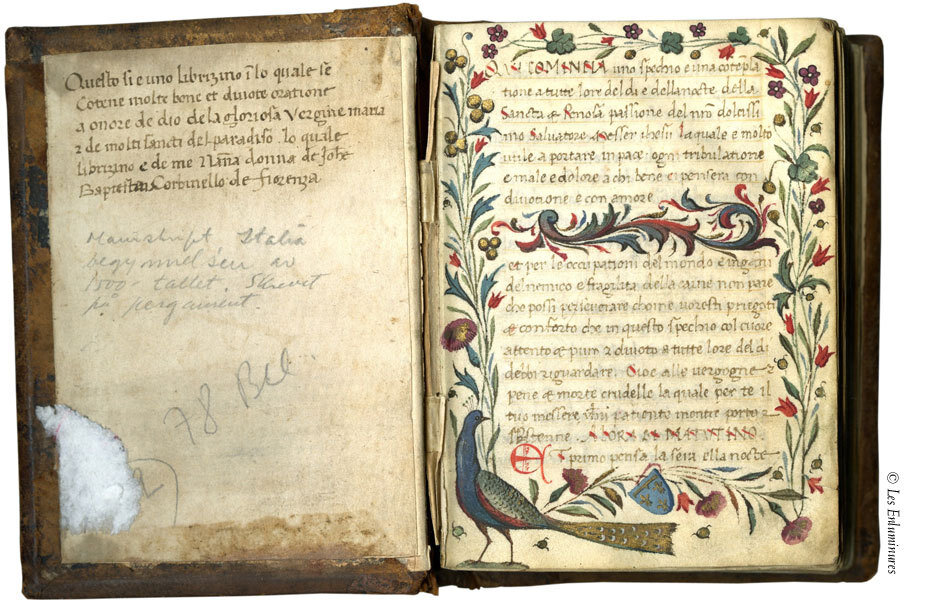 Questo si e uno librizino ĩ lo quale se
cõtene molte bone et divote oratione
a onore de dio de la gloriosa Vergine maria
2 de molti sancti del paradiso lo quale
librizino e de me Nãna donna de Johē
Baptesta Corbinello de fiorenza
Manuskrift, Italia
begynnelsen av
1500-tallet. Skrevet
på pergament.
78 Bll.
QUI COMINCIA uno spechio e una cõtẽpla
tione a tutte lore del di e della nocte della
Sancta & penosa passione del nrõ dolcissi
mo Salvatore messer ihesu la quale e molto
utile a portare in pace ogni tribulatione
e male e dolore a chi bene ci pensera con
divotione e con amore
et per le occupationi del mondo e ingani
del nemico e fragilita della carne non pare
che possi perseverare choine voresti priegoti
& conforto che in questo spechio col cuore
attento & puro 2 divoto a tutte lore del di
debbi riguardare. Cioe alle vergogne
pene & morte crudelle la quale per te il
tuo messere patiente mente porto 2
sostenne. ALORA DI MATUTINO.
Et primo pensa la sera ella nocte
© Les Enluminures